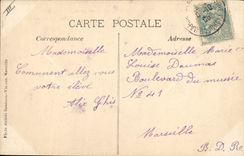 III
CARTE POSTALE
Correspondance
Adresse
Mademoiselle
Comment allez vous
votre élève
Mademoiselle Marie
Louise Daumas
Boulevard du musée
No 41
Marseille
B. D. R